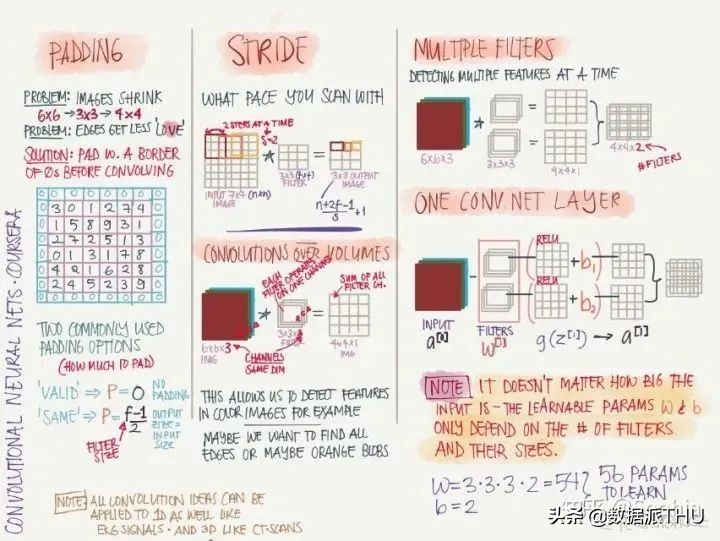 CONVOLUTIONAL NEURAL NETS · COURSERA
PADDING
PROBLEM: IMAGES SHRINK
6x6 → 3x3 → 4x4
PROBLEM: EDGES GET LESS 'LOVE'
SOLUTION: PAD W. A BORDER
OF 0s BEFORE CONVOLVING
0 0 0 0 0 0 0 0
0 3 0 1 2 7 4 0
0 1 5 8 9 3 1 0
0 2 7 2 5 1 3 0
0 0 1 3 1 7 8 0
0 4 2 1 6 2 8 0
0 2 4 5 2 3 9 0
0 0 0 0 0 0 0 0
TWO COMMONLY USED
PADDING OPTIONS
(HOW MUCH TO PAD)
'VALID' ⇒ P=0 NO PADDING
'SAME' ⇒ P= f-1/2 OUTPUT SIZE = INPUT SIZE
FILTER SIZE
NOTE: ALL CONVOLUTION IDEAS CAN BE
APPLIED TO 1D AS WELL LIKE
EKG SIGNALS · AND 3D LIKE CT-SCANS
STRIDE
WHAT PACE YOU SCAN WITH
2 STEPS AT A TIME
S=2
* =
INPUT 7x7 (n×n) IMAGE
3x3 (f×f) FILTER
3x3 OUTPUT IMAGE
n+2p-1/s +1
CONVOLUTIONS OVER VOLUMES
EACH FILTER OPERATES ON ONE CHANNEL
SUM OF ALL FILTER CH.
* =
6x6x3 IMG
3x3x3 FILTER
4x4x1 IMG
CHANNELS SAME DIM
THIS ALLOWS US TO DETECT FEATURES
IN COLOR IMAGES FOR EXAMPLE
MAYBE WE WANT TO FIND ALL
EDGES OR MAYBE ORANGE BLOBS
MULTIPLE FILTERS
DETECTING MULTIPLE FEATURES AT A TIME
* = =
6x6x3
3x3x3
4x4x1
4x4x2
#FILTERS
ONE CONV.NET LAYER
RELU
( + b1)
RELU
( + b2)
INPUT a[0]
FILTERS W[1]
g(z[1]) → a[1]
NOTE IT DOESN'T MATTER HOW BIG THE
INPUT IS - THE LEARNABLE PARAMS W & b
ONLY DEPEND ON THE # OF FILTERS
AND THEIR SIZES.
W=3·3·3·2=54
b=2
56 PARAMS
TO LEARN
头条 @数据派THU